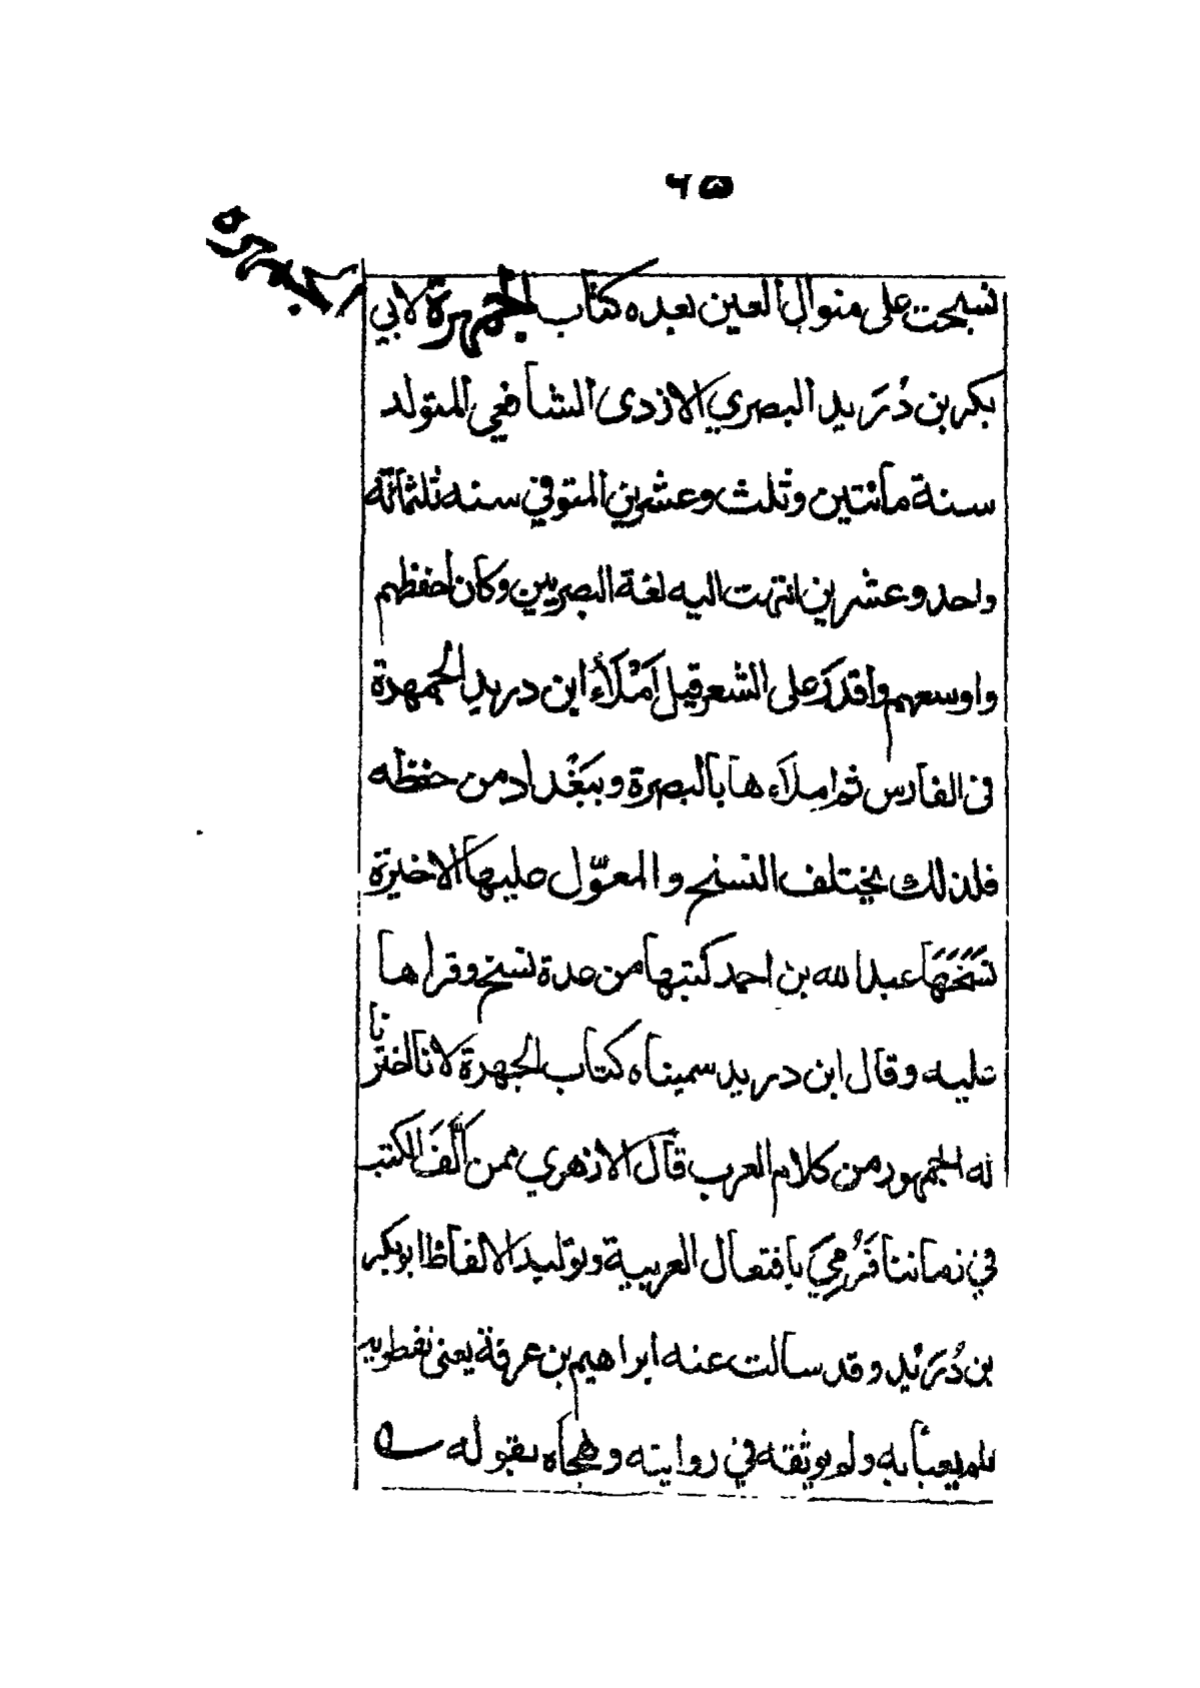 ٦٥
الجمهرة
نسجت على منوال العين بعده كتاب الجمهرة لابي
بكر بن دُرَيد البصري الازدى الشافعي المتولد
سنة مائتين وثلث وعشرين المتوفي سنه ثلثمائه
واحد وعشرين انتهت اليه لغة البصريين وكان احفظهم
واوسعهم واقدر على الشعر قيل اَمْلأَ ابن دريد الجمهرة
فى الفارس ثم املاء ها بالبصرة وببَغْداد من حفظه
فلذلك يختلف النسخ والمعوّل عليها الاخيرة
نَسَخَهَا عبد الله بن احمد كتبها من عدة نسخ وقراها
عليه وقال ابن دريد سميناه كتاب الجمهرة لانا اخترنا
له الجمهور من كلام العرب قال الازهري ممن اَلَّفَ الكتب
في زماننا فَرُمِيَ بافتعال العربية وتوليد الالفاظ ابو بكر
بن دُرَيْد وقد سالت عنه ابراهيم بن عرفة يعنى نفطويه
فلم يعبأ به ولم يوثقه في روايته وهجاه بقوله